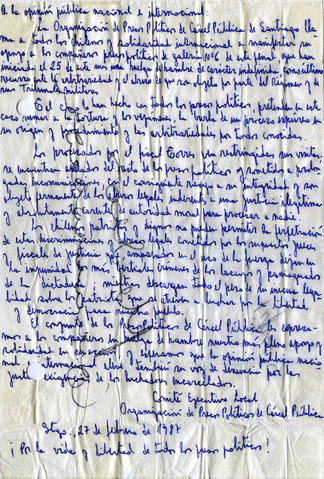 A la opinión pública nacional e internacional:
La Organización de Presos Políticos de Cárcel Pública de Santiago lla
ma a todos los chilenos y solidaridad internacional a manifestar su
apoyo a los compañeros expolíticos de galería Nº6 de este penal que han
iniciado el 25 de este mes una huelga de hambre de carácter indefinido, como último
recurso ante la arbitrariedad y el abuso de que son objeto por parte del Régimen y de sus
Tribunales Militares.
Tal como lo han hecho con todos los presos políticos, pretenden en este
caso sumar a la tortura y la represión, la de un proceso espurio en
su origen y procedimiento y las arbitrariedades por todos conocidas.
Los procesados por el fiscal Torres son restringidos sus visitas,
se encuentran aislados del resto de los presos políticos y sometidos a prolon
gadas incomunicaciones, con el consiguiente riesgo a su integridad y son
objeto permanente de los abusos legales inherentes a una justicia ilegítima
y absolutamente carente de autoridad moral para procesar a nadie.
Los chilenos patriotas y dignos no pueden permitir la perpetración
de estas discriminaciones y abusos legales cometidos por los supuestos jueces
y fiscales de justicia que amparados en el uso de la fuerza dejan en
la impunidad los más brutales crímenes de los lacayos y paniaguados
de la dictadura, mientras descargan todo el peso de su inicua lega
lidad sobre los patriotas que se atreven a luchar por la libertad
y democracia para nuestro pueblo.
El conjunto de los Presos Políticos de Cárcel Pública, les expresa
mos a los compañeros en huelga de hambre nuestro más pleno apoyo y
solidaridad en y esperamos que la opinión pública nacio
nal e internacional eleve también su voz de denuncia por las
justas exigencias de los luchadores encarcelados.
Comité Ejecutivo Local
Organización de Presos Políticos de Cárcel Pública
Stgo., 27 de febrero de 1987
¡Por la vida y libertad de todos los presos políticos!